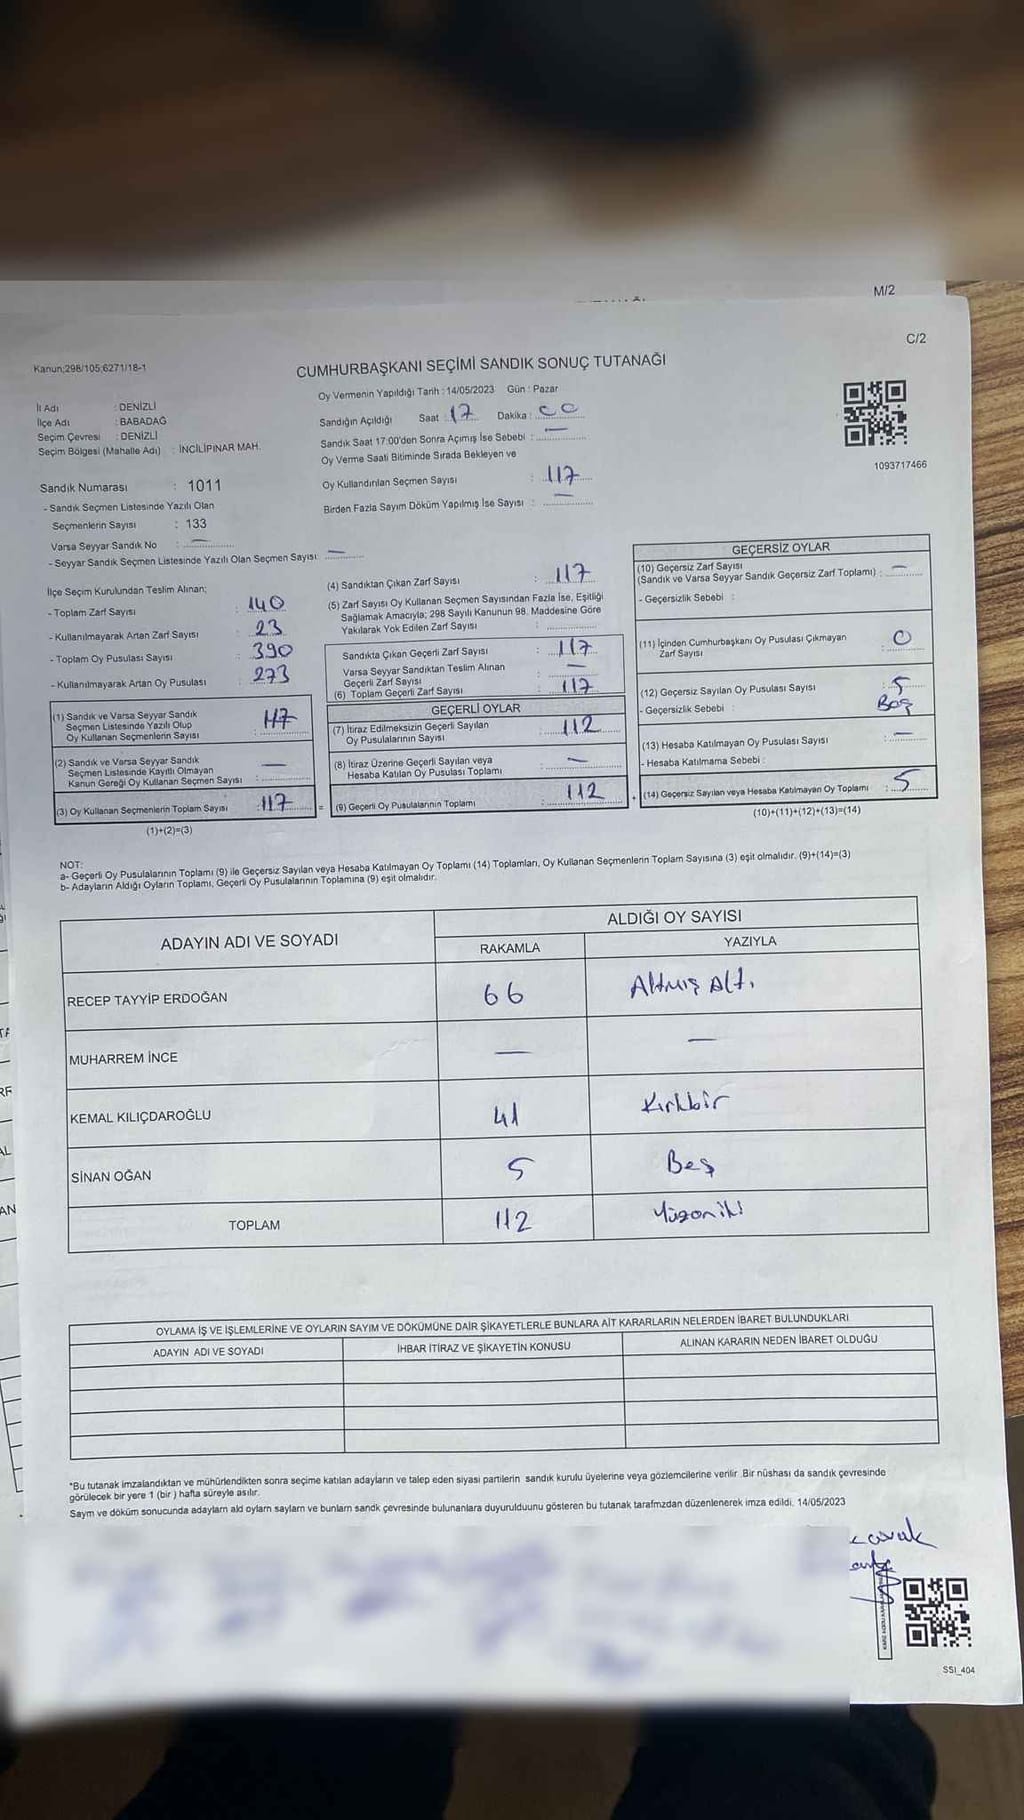 M/2
C/2
Kanun;298/105;6271/18-1
CUMHURBAŞKANI SEÇİMİ SANDIK SONUÇ TUTANAĞI
Oy Vermenin Yapıldığı Tarih : 14/05/2023 Gün : Pazar
İl Adı : DENİZLİ
İlçe Adı : BABADAĞ
Seçim Çevresi : DENİZLİ
Seçim Bölgesi (Mahalle Adı) : İNCİLİPINAR MAH.
Sandığın Açıldığı Saat : 17 Dakika : 00
Sandık Saat 17:00'den Sonra Açımış İse Sebebi : —
Oy Verme Saati Bitiminde Sırada Bekleyen ve
Oy Kullandırılan Seçmen Sayısı : 117
Birden Fazla Sayım Döküm Yapılmış İse Sayısı : —
1093717466
Sandık Numarası : 1011
- Sandık Seçmen Listesinde Yazılı Olan
Seçmenlerin Sayısı : 133
Varsa Seyyar Sandık No : —
- Seyyar Sandık Seçmen Listesinde Yazılı Olan Seçmen Sayısı: —
İlçe Seçim Kurulundan Teslim Alınan;
- Toplam Zarf Sayısı : 140
- Kullanılmayarak Artan Zarf Sayısı : 23
- Toplam Oy Pusulası Sayısı : 390
- Kullanılmayarak Artan Oy Pusulası : 273
(1) Sandık ve Varsa Seyyar Sandık
Seçmen Listesinde Yazılı Olup
Oy Kullanan Seçmenlerin Sayısı : 117
(2) Sandık ve Varsa Seyyar Sandık
Seçmen Listesinde Kayıtlı Olmayan
Kanun Gereği Oy Kullanan Seçmen Sayısı : —
(3) Oy Kullanan Seçmenlerin Toplam Sayısı : 117
(1)+(2)=(3)
(4) Sandıktan Çıkan Zarf Sayısı : 117
(5) Zarf Sayısı Oy Kullanan Seçmen Sayısından Fazla İse, Eşitliği
Sağlamak Amacıyla; 298 Sayılı Kanunun 98. Maddesine Göre
Yakılarak Yok Edilen Zarf Sayısı :
Sandıkta Çıkan Geçerli Zarf Sayısı : 117
Varsa Seyyar Sandıktan Teslim Alınan
Geçerli Zarf Sayısı : —
(6) Toplam Geçerli Zarf Sayısı : 117
GEÇERLİ OYLAR
(7) İtiraz Edilmeksizin Geçerli Sayılan
Oy Pusulalarının Sayısı : 112
(8) İtiraz Üzerine Geçerli Sayılan veya
Hesaba Katılan Oy Pusulası Toplamı : —
= (9) Geçerli Oy Pusulalarının Toplamı : 112
GEÇERSİZ OYLAR
(10) Geçersiz Zarf Sayısı
(Sandık ve Varsa Seyyar Sandık Geçersiz Zarf Toplamı) : —
- Geçersizlik Sebebi :
(11) İçinden Cumhurbaşkanı Oy Pusulası Çıkmayan
Zarf Sayısı : 0
(12) Geçersiz Sayılan Oy Pusulası Sayısı : 5
- Geçersizlik Sebebi : Boş
(13) Hesaba Katılmayan Oy Pusulası Sayısı : —
- Hesaba Katılmama Sebebi :
+ (14) Geçersiz Sayılan veya Hesaba Katılmayan Oy Toplamı : 5
(10)+(11)+(12)+(13)=(14)
NOT:
a- Geçerli Oy Pusulalarının Toplamı (9) ile Geçersiz Sayılan veya Hesaba Katılmayan Oy Toplamı (14) Toplamları, Oy Kullanan Seçmenlerin Toplam Sayısına (3) eşit olmalıdır. (9)+(14)=(3)
b- Adayların Aldığı Oyların Toplamı, Geçerli Oy Pusulalarının Toplamına (9) eşit olmalıdır.
ADAYIN ADI VE SOYADI
ALDIĞI OY SAYISI
RAKAMLA YAZIYLA
RECEP TAYYİP ERDOĞAN 66 Altmış Altı
MUHARREM İNCE — —
KEMAL KILIÇDAROĞLU 41 Kırkbir
SİNAN OĞAN 5 Beş
TOPLAM 112 Yüzoniki
OYLAMA İŞ VE İŞLEMLERİNE VE OYLARIN SAYIM VE DÖKÜMÜNE DAİR ŞİKAYETLERLE BUNLARA AİT KARARLARIN NELERDEN İBARET BULUNDUKLARI
ADAYIN ADI VE SOYADI İHBAR İTİRAZ VE ŞİKAYETİN KONUSU ALINAN KARARIN NEDEN İBARET OLDUĞU
*Bu tutanak imzalandıktan ve mühürlendikten sonra seçime katılan adayların ve talep eden siyasi partilerin sandık kurulu üyelerine veya gözlemcilerine verilir. Bir nüshası da sandık çevresinde
görülecek bir yere 1 (bir ) hafta süreyle asılır.
Saym ve döküm sonucunda adaylarn ald oylarn saylarn ve bunlarn sandk çevresinde bulunanlara duyurulduunu gösteren bu tutanak tarafmzdan düzenlenerek imza edildi. 14/05/2023
SSI_404